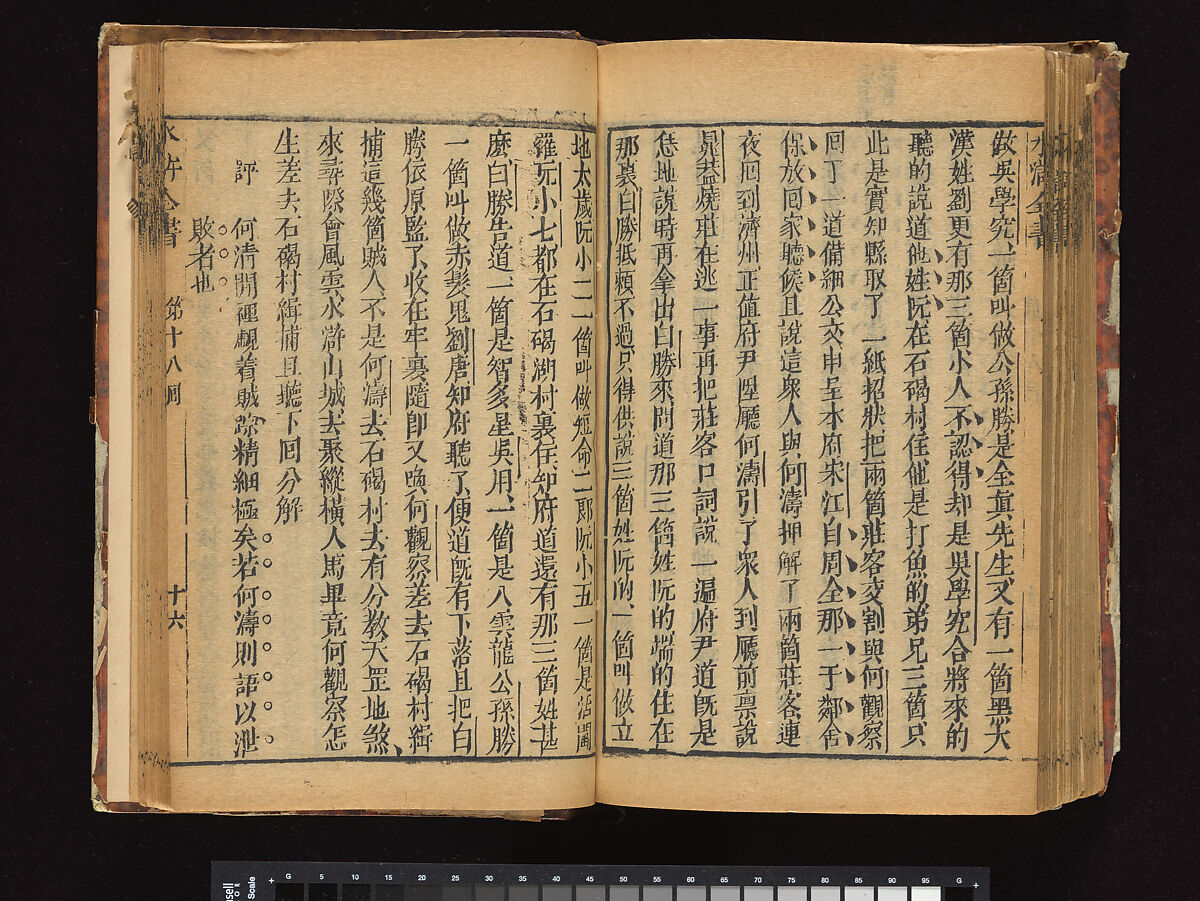 水滸全書
做吳學究一箇叫做公孫勝是全真先生又有一箇黑大
漢姓劉更有那三箇小人不認得却是吳學究合將來的
聽的說道他姓阮在石碣村住他是打魚的弟兄三箇只
此是實知縣取了一紙招狀把兩箇莊客交割與何觀察
回了一道備細公文申呈本府宋江自周全那一干鄰舍
保放回家聽候且說這衆人與何濤押解了兩箇莊客連
夜回到濟州正值府尹陞廳何濤引了衆人到廳前禀說
晁葢燒莊在逃一事再把莊客口詞說一遍府尹道旣是
恁地說時再拿出白勝來問道那三箇姓阮的端的住在
那裏白勝抵賴不過只得供說三箇姓阮的一箇叫做立
地太歲阮小二一箇叫做短命二郎阮小五一箇是活閻
羅阮小七都在石碣湖村裏住知府道還有那三箇姓甚
麼白勝告道一箇是智多星吳用一箇是入雲龍公孫勝
一箇叫做赤髮鬼劉唐知府聽了便道旣有下落且把白
勝依原監了收在牢裏隨卽又喚何觀察差去石碣村緝
捕這幾箇賊人不是何濤去石碣村去有分教天罡地煞
來尋際會風雲水滸山城去聚縱橫人馬畢竟何觀察怎
生差去石碣村緝捕且聽下回分解
評
何清閒裡覷着賊踪精細極矣若何濤則語以泄
敗者也
水滸全書
第十八回
十六
G 5 10 15 20 25 30 35 40 45 50 55 60 65 70 75 80 85 90 95 G
Scale